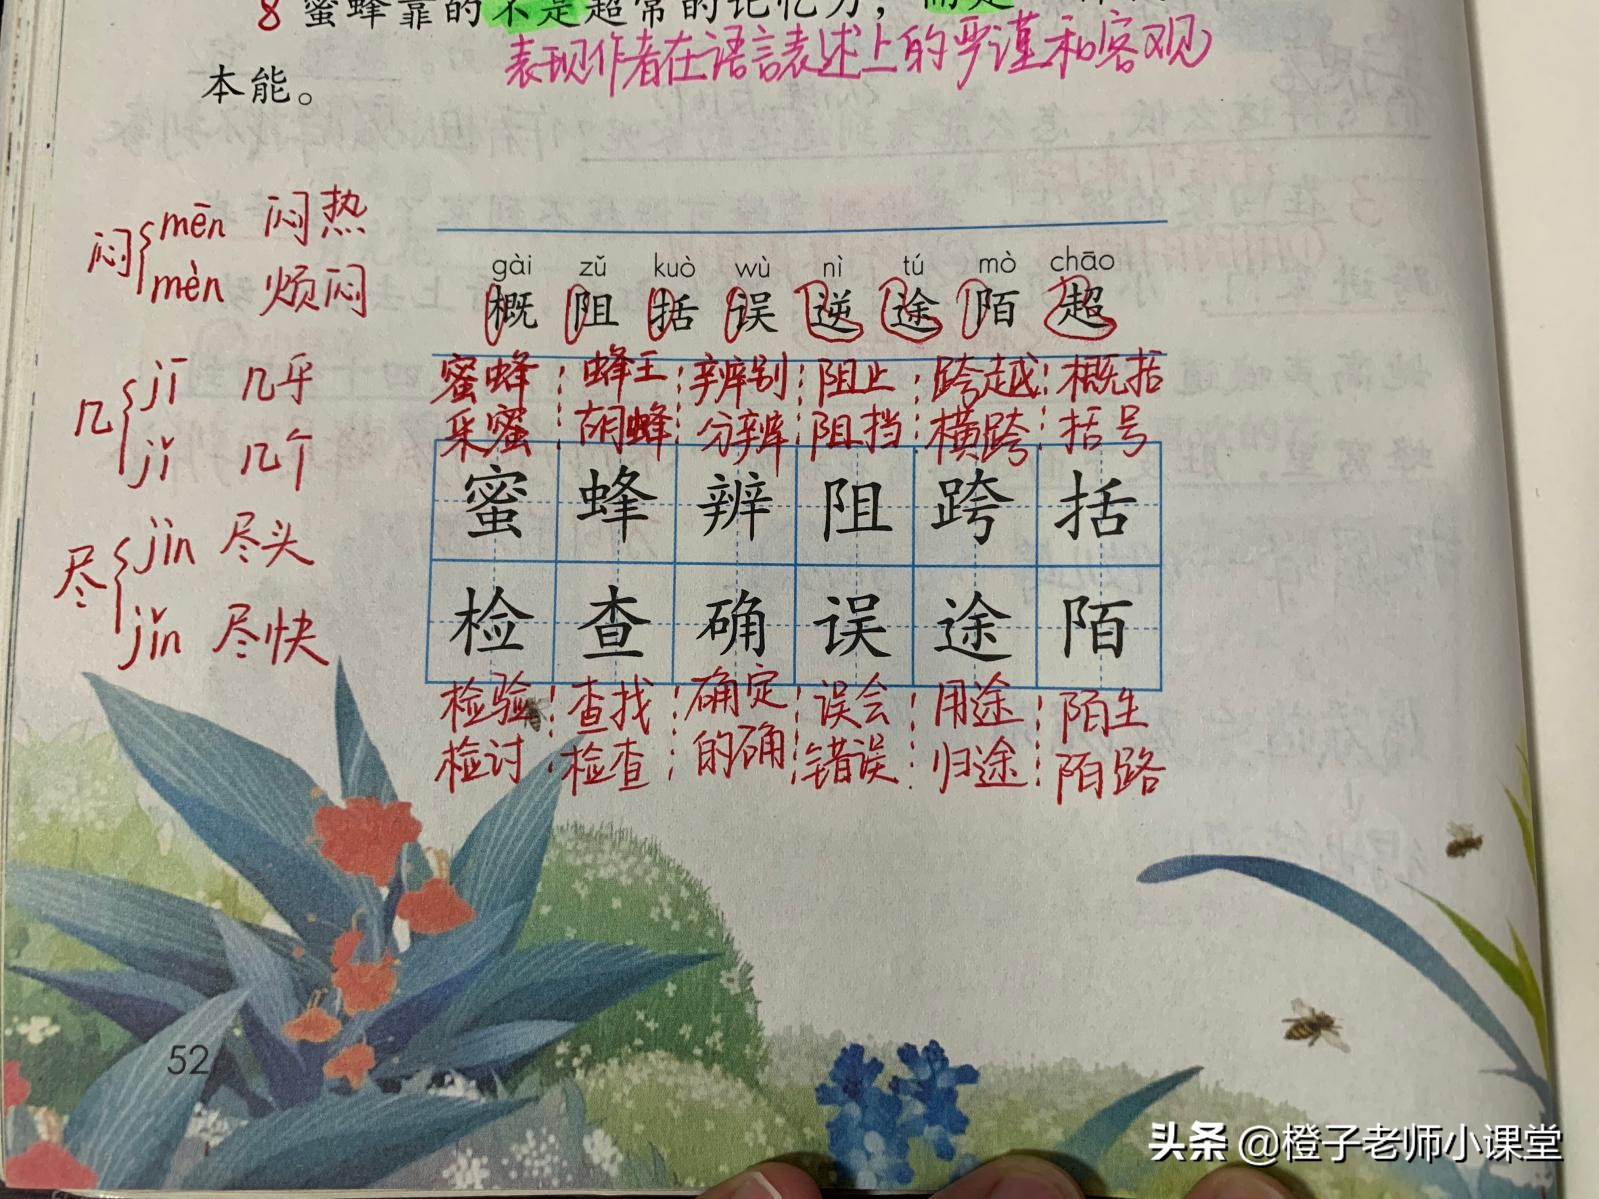 8 蜜蜂靠的不是超常的记忆力，而是
表现作者在语言表述上的严谨和客观
本能。
闷 mēn 闷热
mèn 烦闷
几 jī 几乎
jǐ 几个
尽 jìn 尽头
jǐn 尽快
gài zǔ kuò wù nì tú mò chāo
概 阻 括 误 逆 途 陌 超
蜜蜂 蜂王 辨别 阻止 跨越 概括
采蜜 胡蜂 分辨 阻挡 横跨 括号
蜜 蜂 辨 阻 跨 括
检 查 确 误 途 陌
检验 查找 确定 误会 用途 陌生
检讨 检查 的确 错误 归途 陌路
52
头条 @橙子老师小课堂